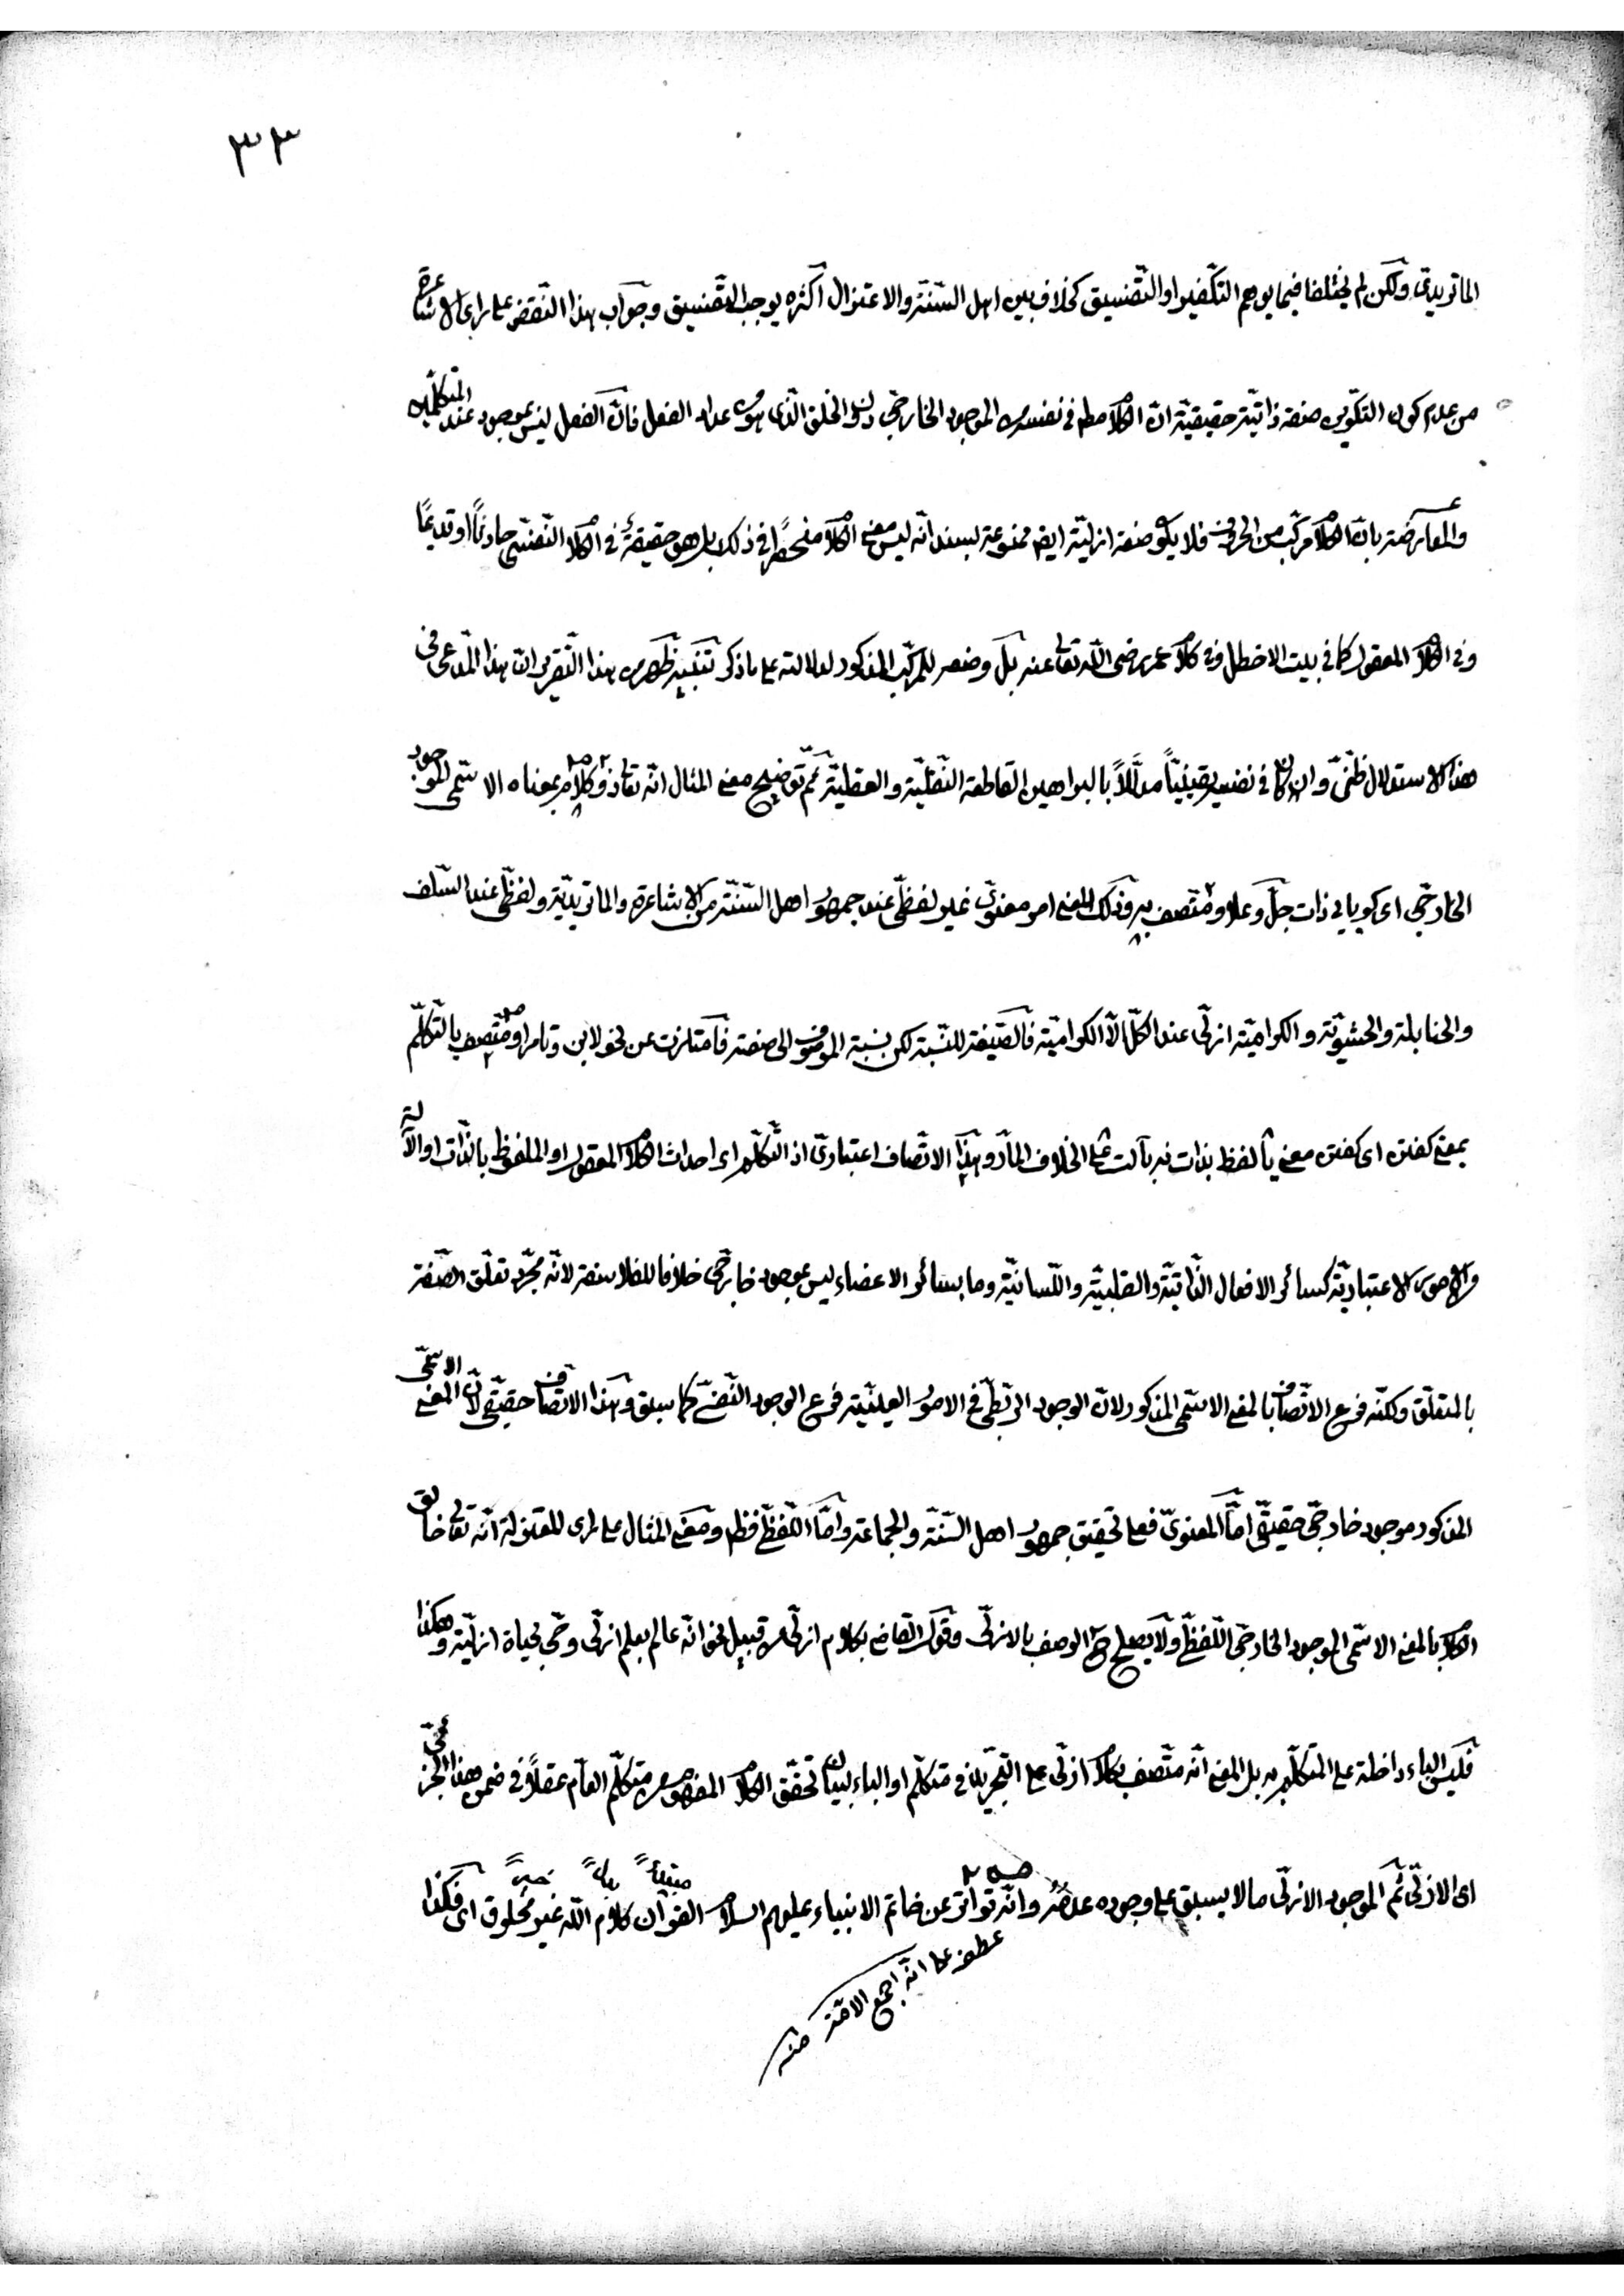 ٣٣
الماتريديّ ولكن لم يختلفا فيما يوهم التكفير او التفسيق كخلاف بين اهل السّنّة والاعتزال اكثره يوجب التفسيق وجواب هذا النّقض على رأى الاشاعرة
من عدم كون التكوين صفة ذاتيّة حقيقيّة انّ الكلام فى نفس الموجود الخارجيّ والخلق الّذى هو من عداد الفعل فانّ الفعل ليس بموجود عند المتكلّمين
والمعارضة بانّ الكلام مركّب من الحروف فلا يكون صفة ازليّة ايضا ممنوعة بسند انّه ليس معنى الكلام منحصرًا فى ذلك بل هو حقيقة فى الكلام النّفسىّ حادثًا او قديمًا
وفى الكلام المعقول كما فى بيت الاخطل وفى كلام عمر رضى اللّه تعالى عنه بل وضعه للمركّب المذكور لدلالته على ما ذكر تنبيه ظهر من هذا التّقرير انّ هذا المدّعى فى
هذا الاستدلال ظنّىّ وان كان فى نفسه يقينيّاً مدلّلاً بالبراهين القاطعة النّقليّة والعقليّة ثمّ توضيح معنى المثال انّه تعالى ذو كلام بمعناه الاسمّى الموجود
الخارجّى اى كويايى ذات جلّ وعلا ومتّصف به وذلك المعنى امر معنوىّ غير لفظىّ عند جمهور اهل السّنّة من الاشاعرة والماتريديّة ولفظىّ عند السّلف
والحنابلة والحشويّة والكراميّة ازلّى عند الكلّ الّا الكراميّة فالصّيغة للنّسبة لكن بنسبة الموصوف الى صفته فامتازت عن نحو لابن وتامر او متّصف بالتّكلّم
بمعنى كفتن اى كفتن معنى يا لفظ بذات نه بآلت على الخلاف المارّ وهذا الاتّصاف اعتبارىّ اذ التّكلّم اى احداث الكلام المعقول او الملفوظ بالذّات او الآلة
والامور الاعتباريّة كسائر الافعال الذّاتيّة والقلبيّة واللّسانيّة وما بسائر الاعضاء ليس بموجود خارجّى خلافا للفلاسفة لانّه مجرّد تعلّق الصّفة
بالمتعلّق ولكنّه فرع الاتّصاف بالمعنى الاسمّى المذكور لانّ الوجود الرّبطىّ فى الامور العينيّة فرع الوجود النّفسىّ كما سبق وهذا الاتّصاف حقيقّى لانّ المعنى الاسمّى
المذكور موجود خارجّى حقيقّى امّا المعنوىّ فعلى تحقيق جمهور اهل السّنّة والجماعة وامّا اللّفظىّ فظاهر ومعنى المثال على رأى المعتزلة انّه تعالى خالق
الكلام بالمعنى الاسمّى الموجود الخارجّى اللّفظىّ ولا يصلح ح الوصف بالازلّى وقول القاضى بكلام ازلّى من قبيل نحو انّه عالم بعلم ازلّى وحّى بحياة ازليّة وهكذا
فليس الباء داخلة على المتكلّم به بل المعنى انّه متّصف بكلام ازلّى على التّجريد فى متكلّم او الباء لبيان تحقّق الكلام المفهوم من متكلّم العامّ عقلاً فى ضمن هذا الجزئّى
اى الازلّى ثمّ الموجود الازلّى ما لا يسبق على وجوده عدمه وانّه تواتر عن خاتم الانبياء عليهم السلام القرآن كلام اللّه غير مخلوق اى فكذا
عطف على انّه اجمع الامّة منه